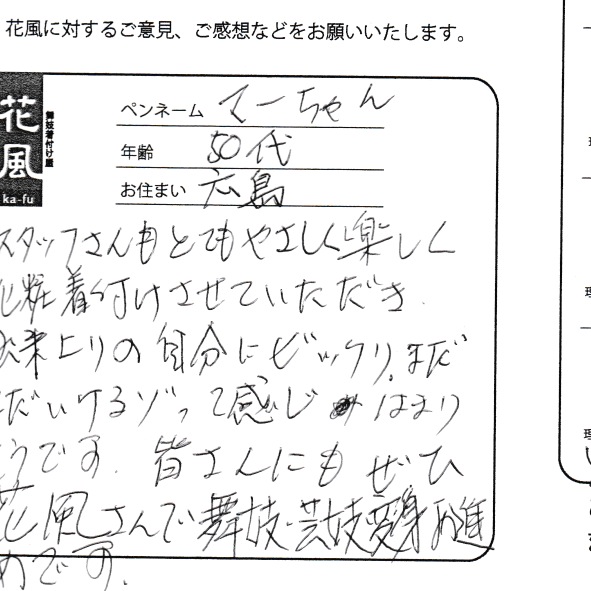 花風に対するご意見、ご感想などをお願いいたします。
花風
舞妓着付け屋
ka-fu
ペンネーム てーちゃん
年齢 50代
お住まい 広島
スタッフさんもとてもやさしく楽しく
化粧着付けさせていただき
出来上りの自分にビックリ。まだ
まだいけるゾって感じ はまり
そうです。皆さんにもぜひ
花風さんで舞妓・芸妓変身お進
めです。
理
理